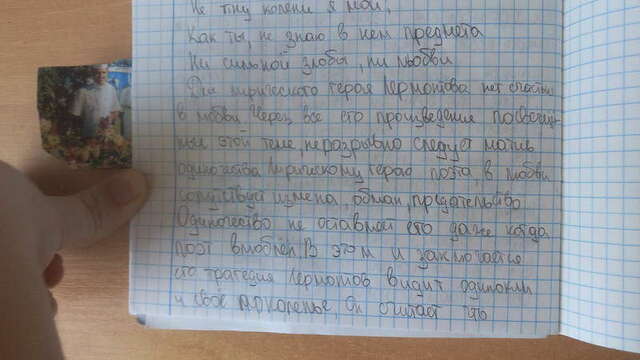 Не гну колени я мои,
Как ты, не знаю в нём предмета
Ни сильной злобы, ни любви
Для лирического героя Лермонтова нет счастья
в любви. Через все его произведения посвящён
ные этой теме, неразрывно следует мотив
одиночества. Лирическому герою поэта, в любви
сопутствуй измена, обман, предательство.
Одиночество не оставляет его даже когда
поэт влюблён. В этом и заключается
его трагедия Лермонтов видит одиноким
и своё поколенье, Он считает что